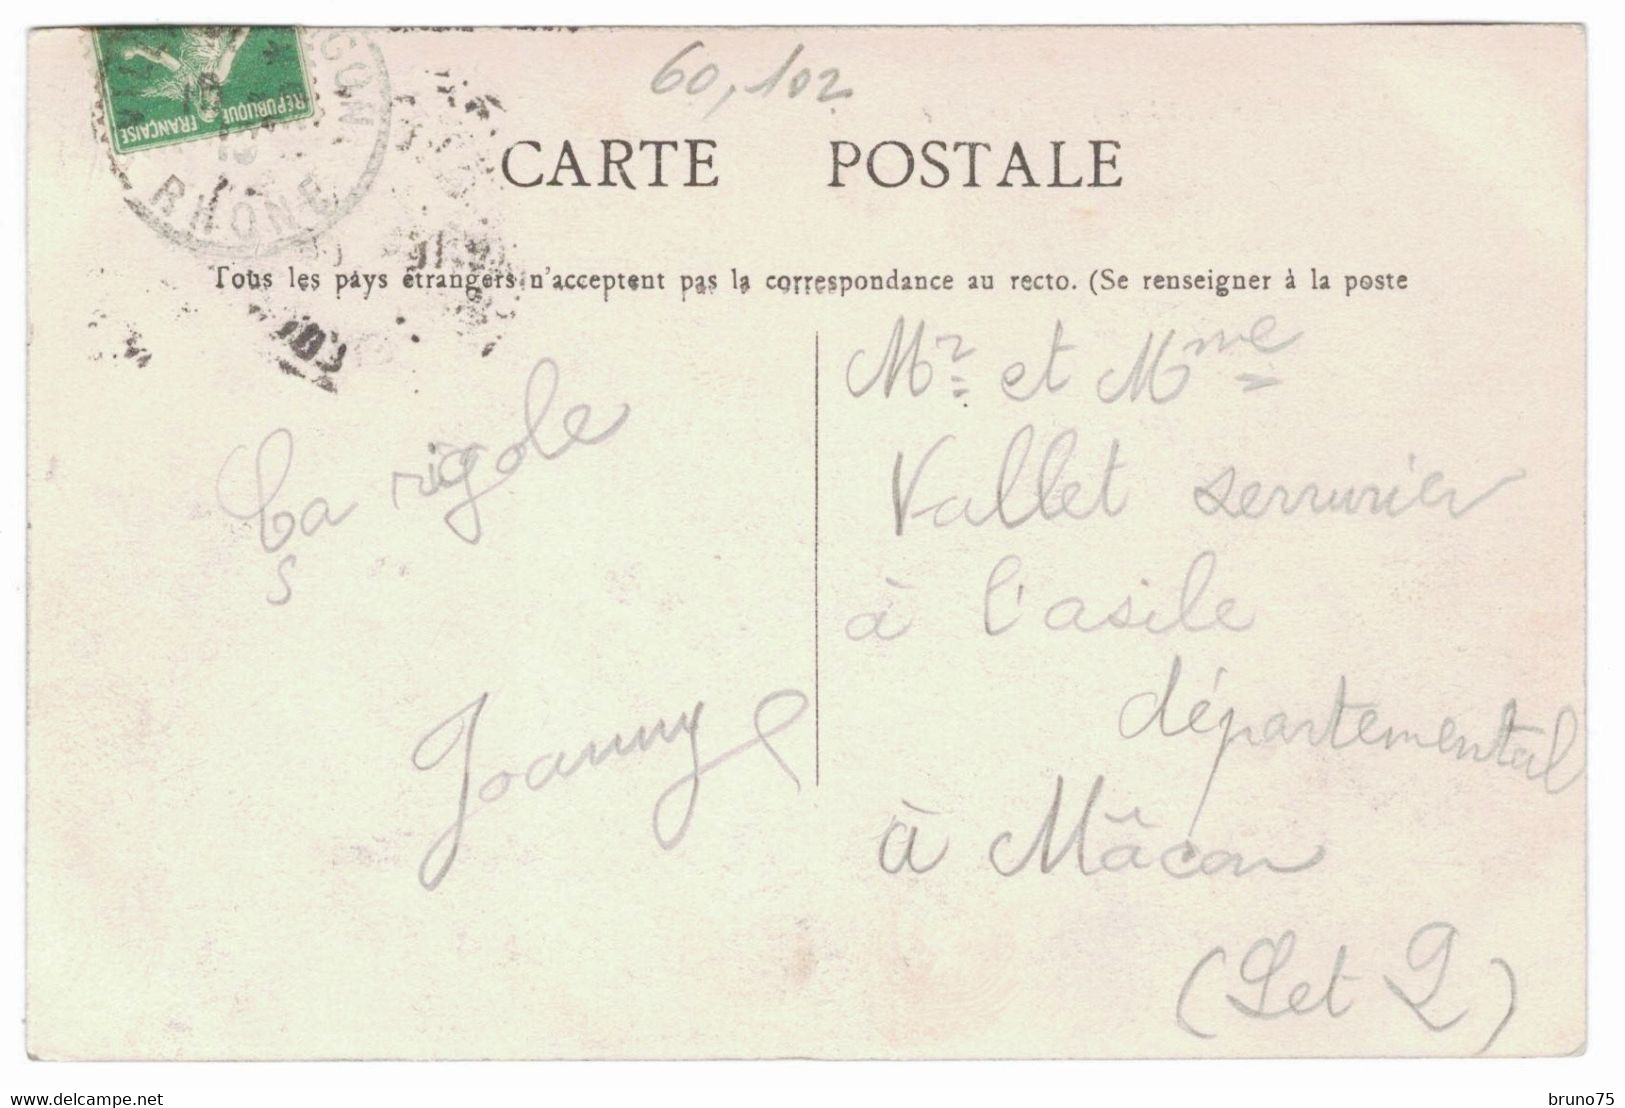 60,102
RÉPUBLIQUE FRANÇAISE
RHONE
CARTE POSTALE
Tous les pays étrangers n'acceptent pas la correspondance au recto. (Se renseigner à la poste
Ça rigole
Joanny
Mr et Mme
Vallet serrurier
à l'asile
départemental
à Mâcon
(S et L)
delcampe.net
bruno75